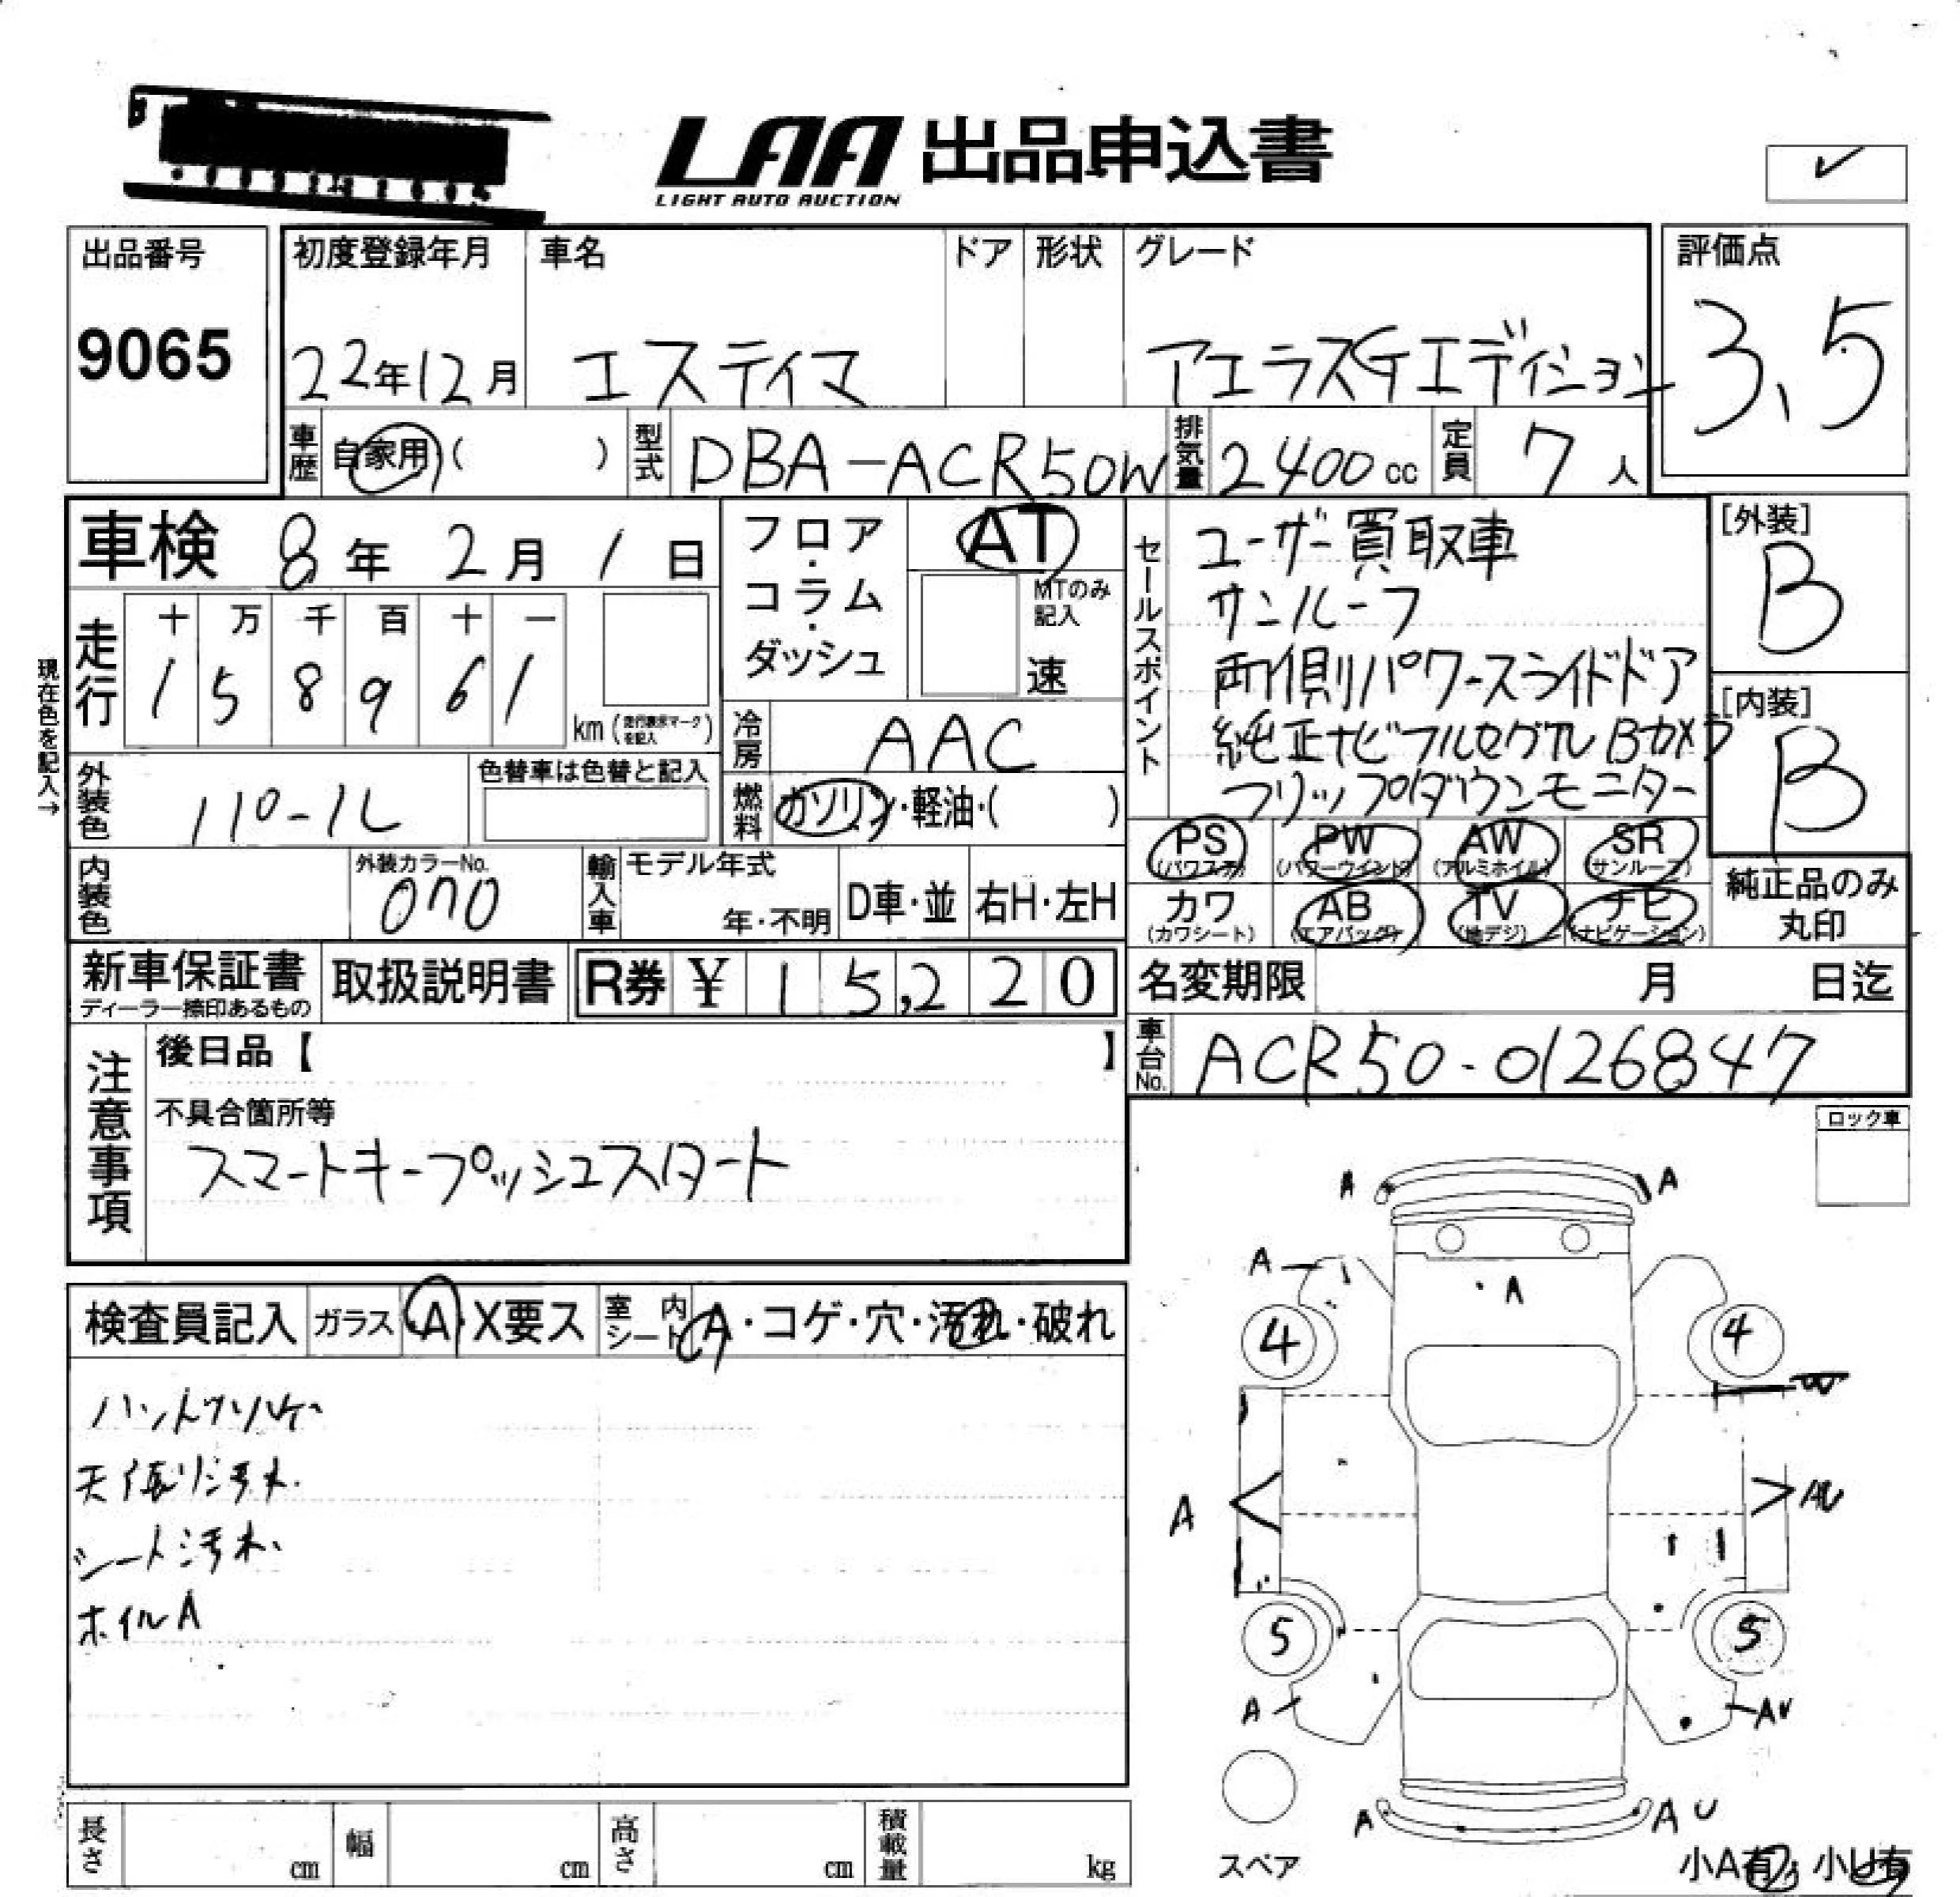 LAA 出品申込書
LIGHT AUTO AUCTION
✓
出品番号
9065
初度登録年月 車名 ドア 形状 グレード
22年12月 エスティマ アエラスGエディション
評価点
3.5
車歴 自家用 ( ) 型式 DBA-ACR50W 排気量 2400cc 定員 7人
車検 8年 2月 1日
フロア・コラム・ダッシュ
AT
MTのみ記入
速
現在色を記入→
走行 十 万 千 百 十 一
1 5 8 9 6 1 km (走行表示マークを記入)
冷房 AAC
外装色 パール 色替車は色替と記入
燃料 ガソリン・軽油・( )
内装色 外装カラーNo. 070
輸入車 モデル年式 年・不明 D車・並 右H・左H
セールスポイント
ユーザー買取車
サンルーフ
両側パワースライドドア
純正ナビフルセグTV Bカメラ
フリップダウンモニター
[外装]
B
[内装]
B
PS (パワステ) PW (パワーウインド) AW (アルミホイル) SR (サンルーフ)
カワ (カワシート) AB (エアバッグ) TV (地デジ) ナビ (ナビゲーション)
純正品のみ丸印
新車保証書 ディーラー捺印あるもの 取扱説明書 R券 ¥ 15,220
名変期限 月 日迄
車台No. ACR50-0126847
注意事項
後日品【 】
不具合箇所等
スマートキープッシュスタート
ロック車
検査員記入 ガラス A・X要ス 室内シート A・コゲ・穴・汚れ・破れ
天張り汚れ
シート汚れ
ホイルA
A A
A A
4 4
W
A AU
5 5
A AU
A AU
スペア
小A有 小U有
長さ cm 幅 cm 高さ cm 積載量 kg